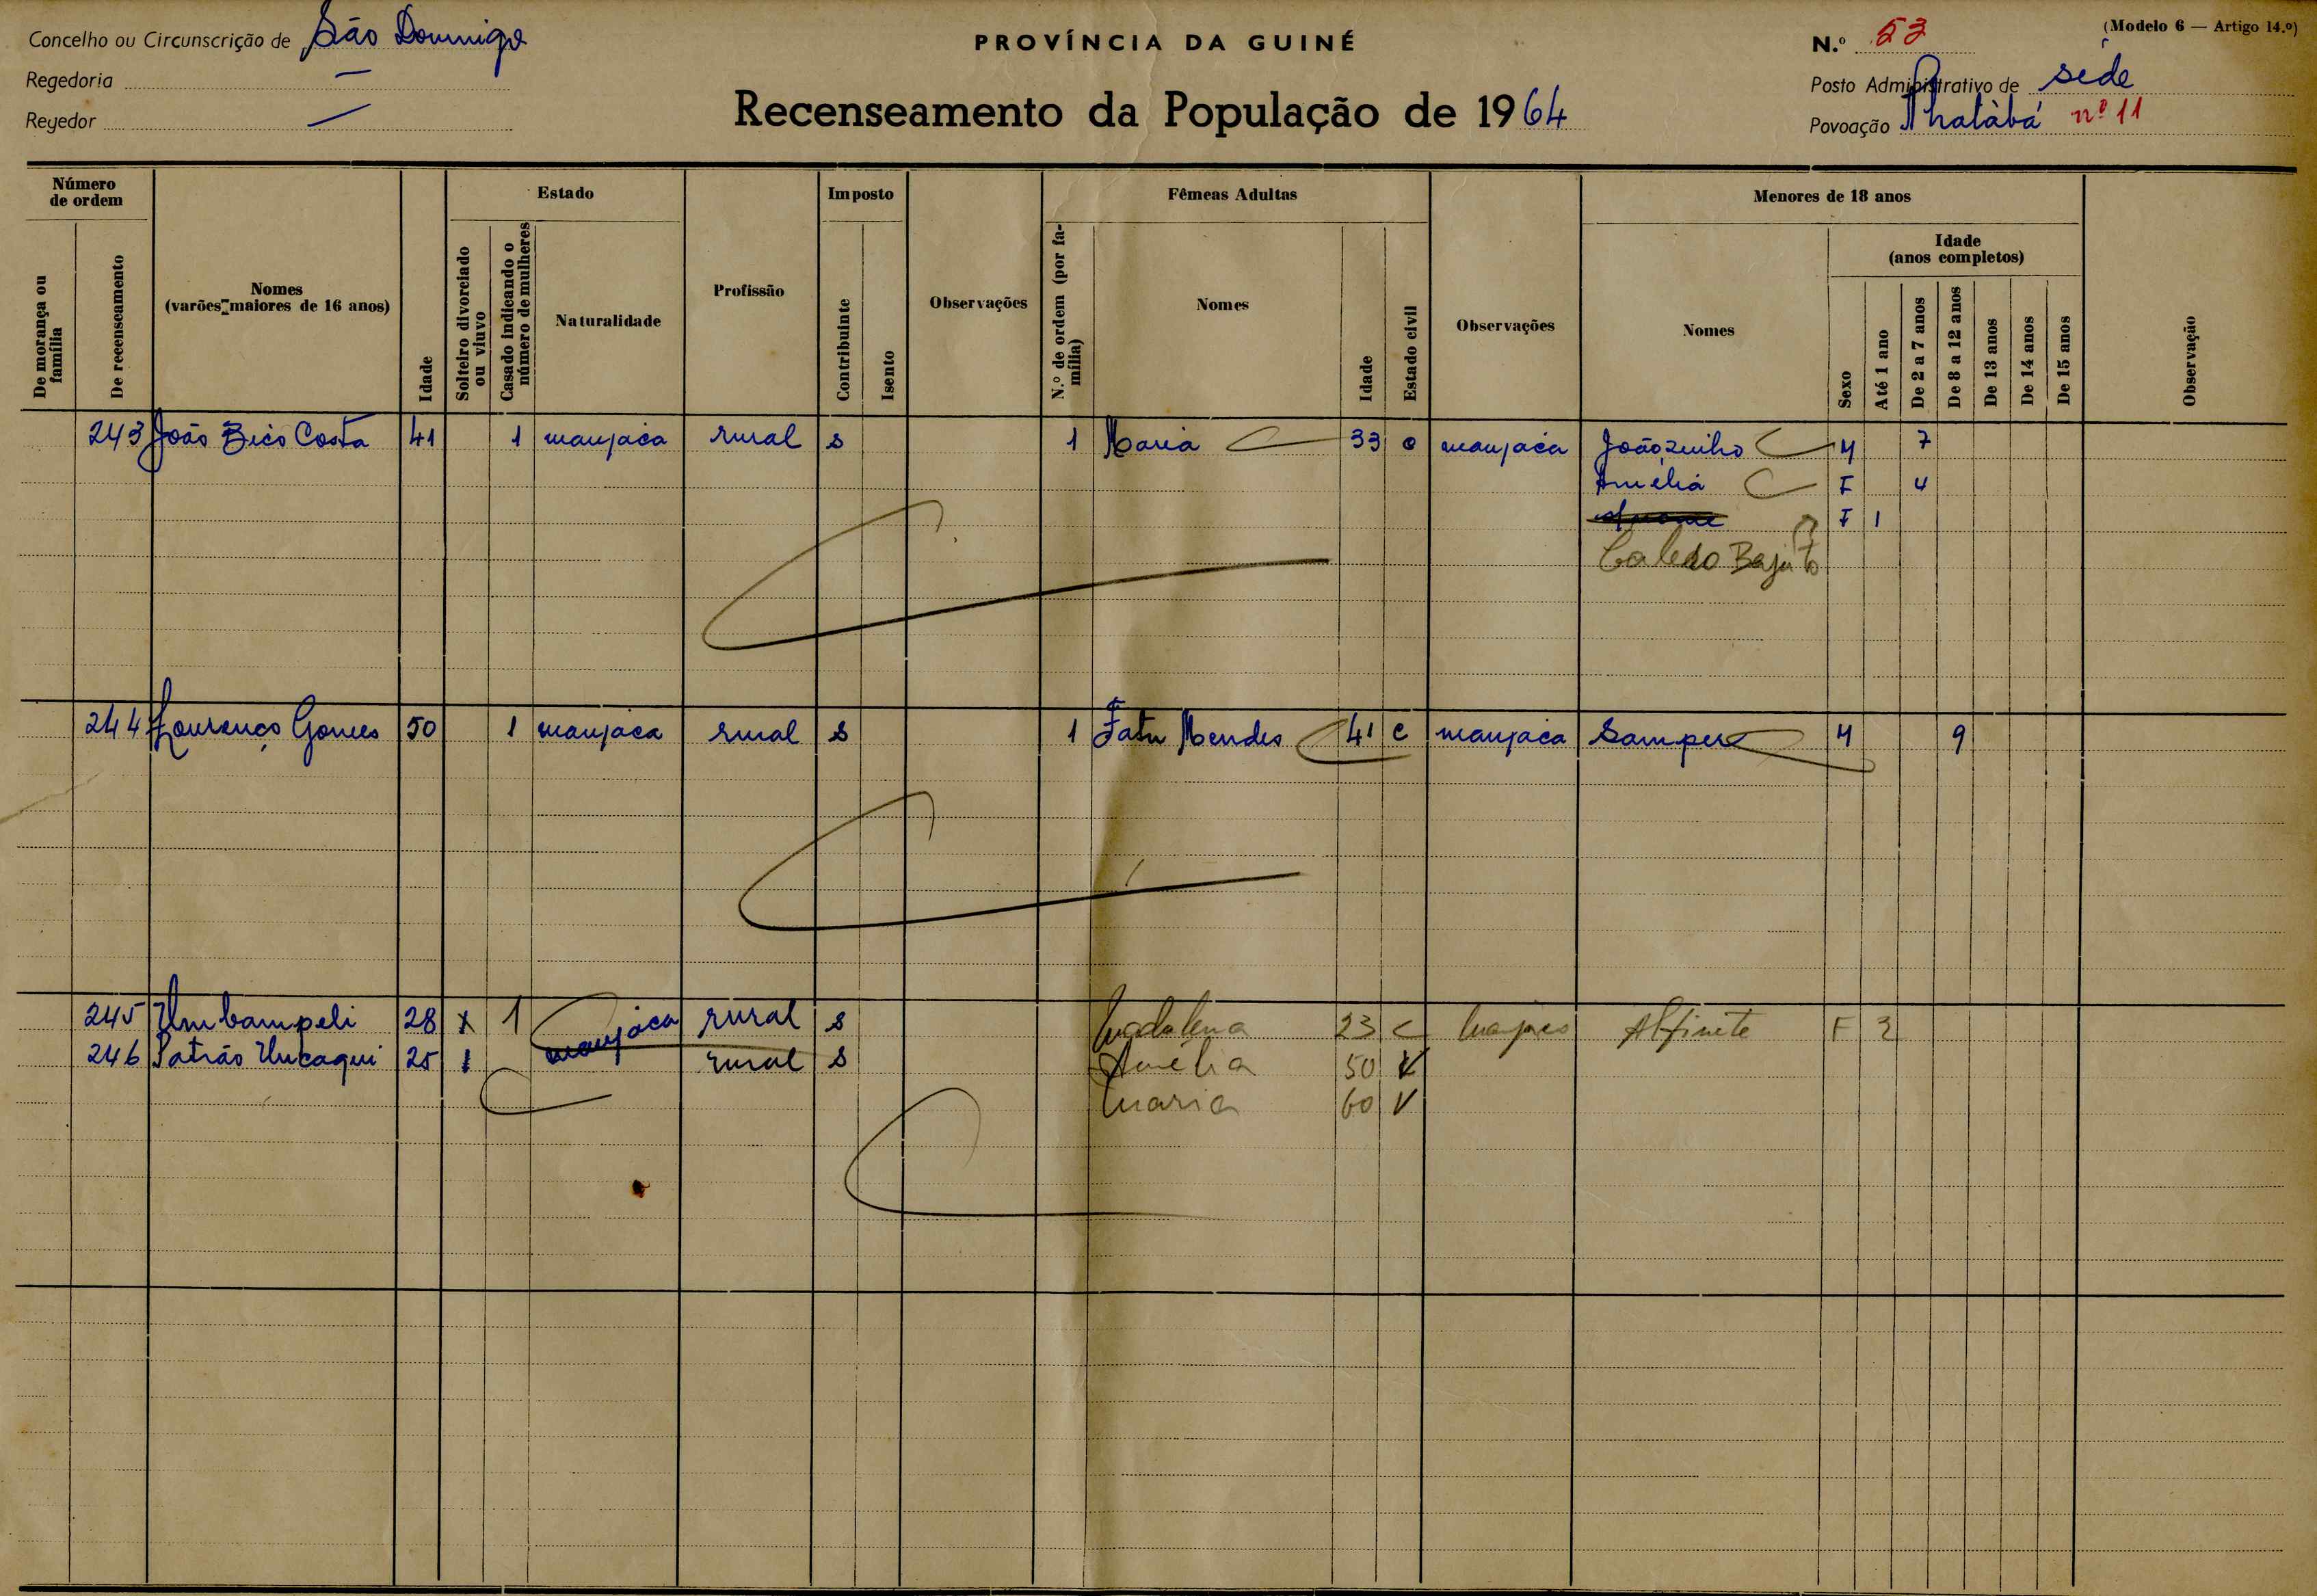 Concelho ou Circunscrição de São Domingos
Regedoria —
Regedor —
PROVÍNCIA DA GUINÉ
Recenseamento da População de 1964
(Modelo 6 — Artigo 14.º)
N.º 53
Posto Administrativo de séde
Povoação nº 11
Número de ordem
De morança ou família
De recenseamento
Nomes (varões maiores de 16 anos)
Idade
Estado
Solteiro divorciado ou viuvo
Casado indicando o número de mulheres
Naturalidade
Profissão
Imposto
Contribuinte
Isento
Observações
Fêmeas Adultas
N.º de ordem (por família)
Nomes
Idade
Estado civil
Observações
Menores de 18 anos
Nomes
Idade (anos completos)
Sexo
Até 1 ano
De 2 a 7 anos
De 8 a 12 anos
De 13 anos
De 14 anos
De 15 anos
Observação
243 João Bico Costa 41 1 manjaca rural s 1 Maria 33 c manjaca Joãozinho M 7
Amélia F 4
F 1
Bajuto
244 Lourenço Gomes 50 1 manjaca rural s 1 Fatu Mendes 41 c manjaca Sampere M 9
245 Umbampeli 28 x 1 manjaca rural s Madalena 23 c Manjaco Alfinete F 2
246 Patrão Uncaqui 25 1 rural s Amélia 50 V
Maria 60 V